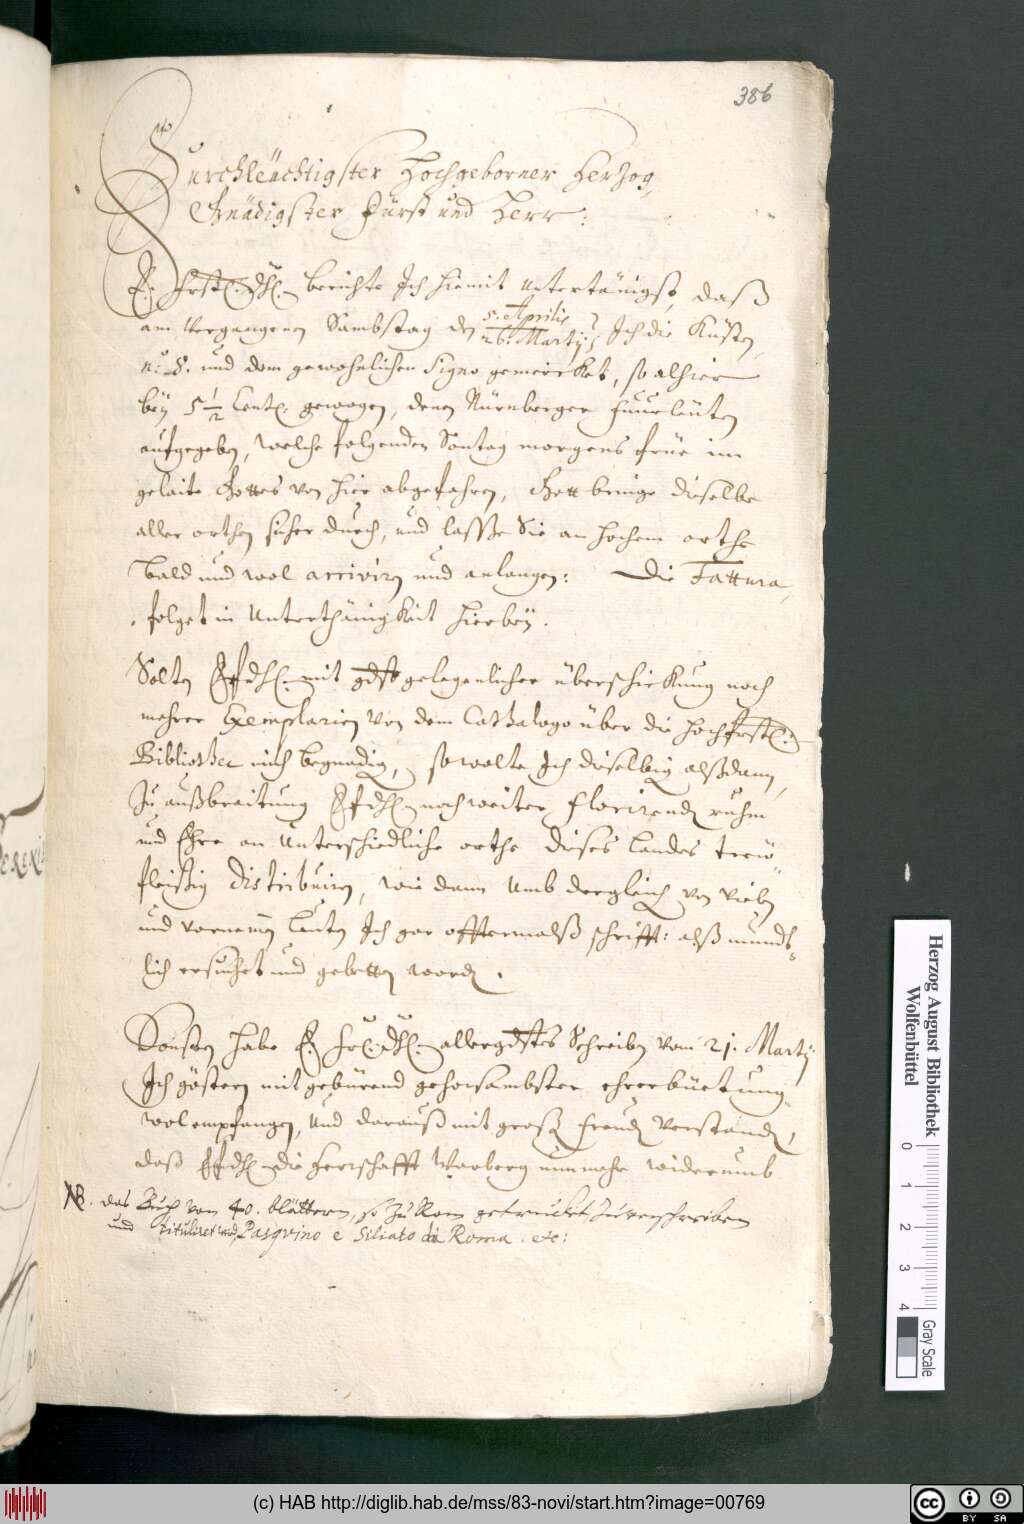 386
Durchleüchtigster Hochgeborner Herzog,
Gnädigster Fürst und Herr:
E. Fürstl. Dhl. berichte Ich hiemit untertänigst, daß
am vergangenen Sambstag den 5. Aprilis / 26. Martij, Ich die Kisten,
n.º 8. und dem gewohnlichen Signo gemerket, so alhier
bey 5 1/2 Cent. gewogen, denen Nürnberger fuhrleüten
aufgegeben, welche folgenden Sontag morgens früe im
gelaite Gottes von hier abgefahren, Gott bringe dieselbe
aller orthen sicher durch, und lasse Sie an hochem orthe
bald und wol arriviren und anlangen: Die Fattura,
folget in Unterthänigkeit hierbey.
Solten EfDhl. mit gdst gelegenlicher überschickung noch
mehrer Exemplarien von dem Cathalogo über die hochfürstl:
Bibliothec mich begnadig, so wolte Ich dieselbig alßdann,
Zu außbreitung EfDhl. noch weiter florirendn ruhm
und Ehre an Unterschiedliche orthe dieses Landes treü-
fleißig distribuiren, wie dann umb dergleich von vielen
und vornemen Leuten Ich gar offtermalß schrifft: alß mündt-
lich ersuchet und gebetten worden.
Sonsten habe E. Frl. Dhl. allergdstes Schreiben vom 21. Martij
Ich gestern mit gebürend gehorsambster ehrerbüetung
wol empfangen, und darauß mit großen freuden verstanden,
daß EfDhl die herrschafft nunmehr widerumb
NB. das Buch von 40. blättern, so zu Rom getrucket zu verschreiben
und tituliret wird, Pasqvino e Siliato di Roma. etc:
Herzog August Bibliothek
Wolfenbüttel
0 1 2 3 4
Gray Scale
(c) HAB http://diglib.hab.de/mss/83-novi/start.htm?image=00769
cc BY SA